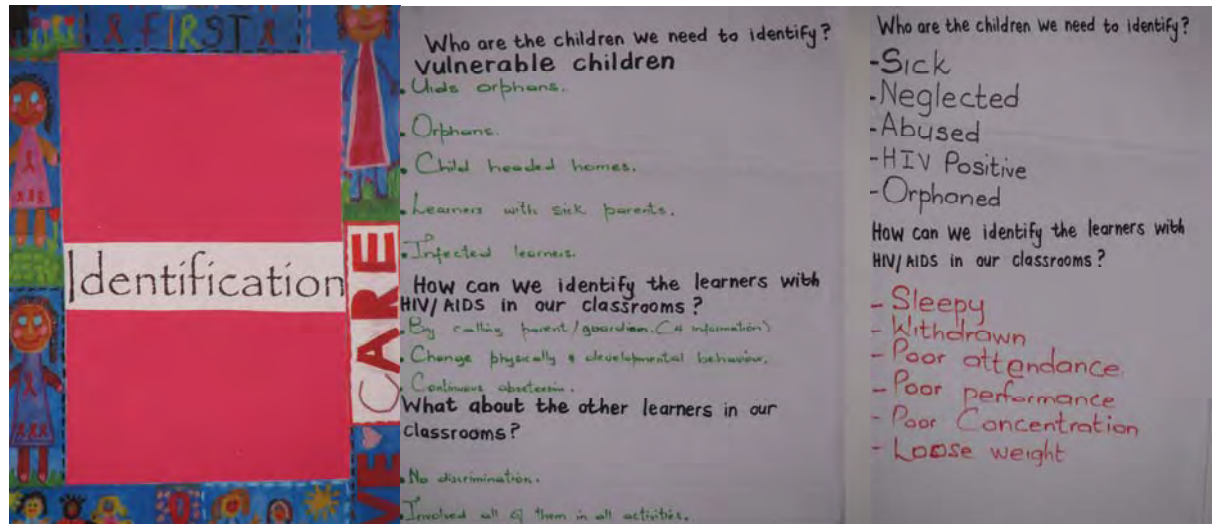 FIRST
Identification
CARE
Who are the children we need to identify?
vulnerable children
Uids orphans.
Orphans.
Child headed homes.
Learners with sick parents.
Infected learners.
How can we identify the learners with
HIV/AIDS in our classrooms?
By calling parent/guardian. (4 information)
Change physically & developmental behaviour.
Continuous
What about the other learners in our
classrooms?
No discrimination.
Involved all of them in all activities.
Who are the children we need to identify?
-Sick
-Neglected
-Abused
-HIV Positive
-Orphaned
How can we identify the learners with
HIV/AIDS in our classrooms?
- Sleepy
- Withdrawn
- Poor attendance
- Poor performance
- Poor Concentration
- Loose weight